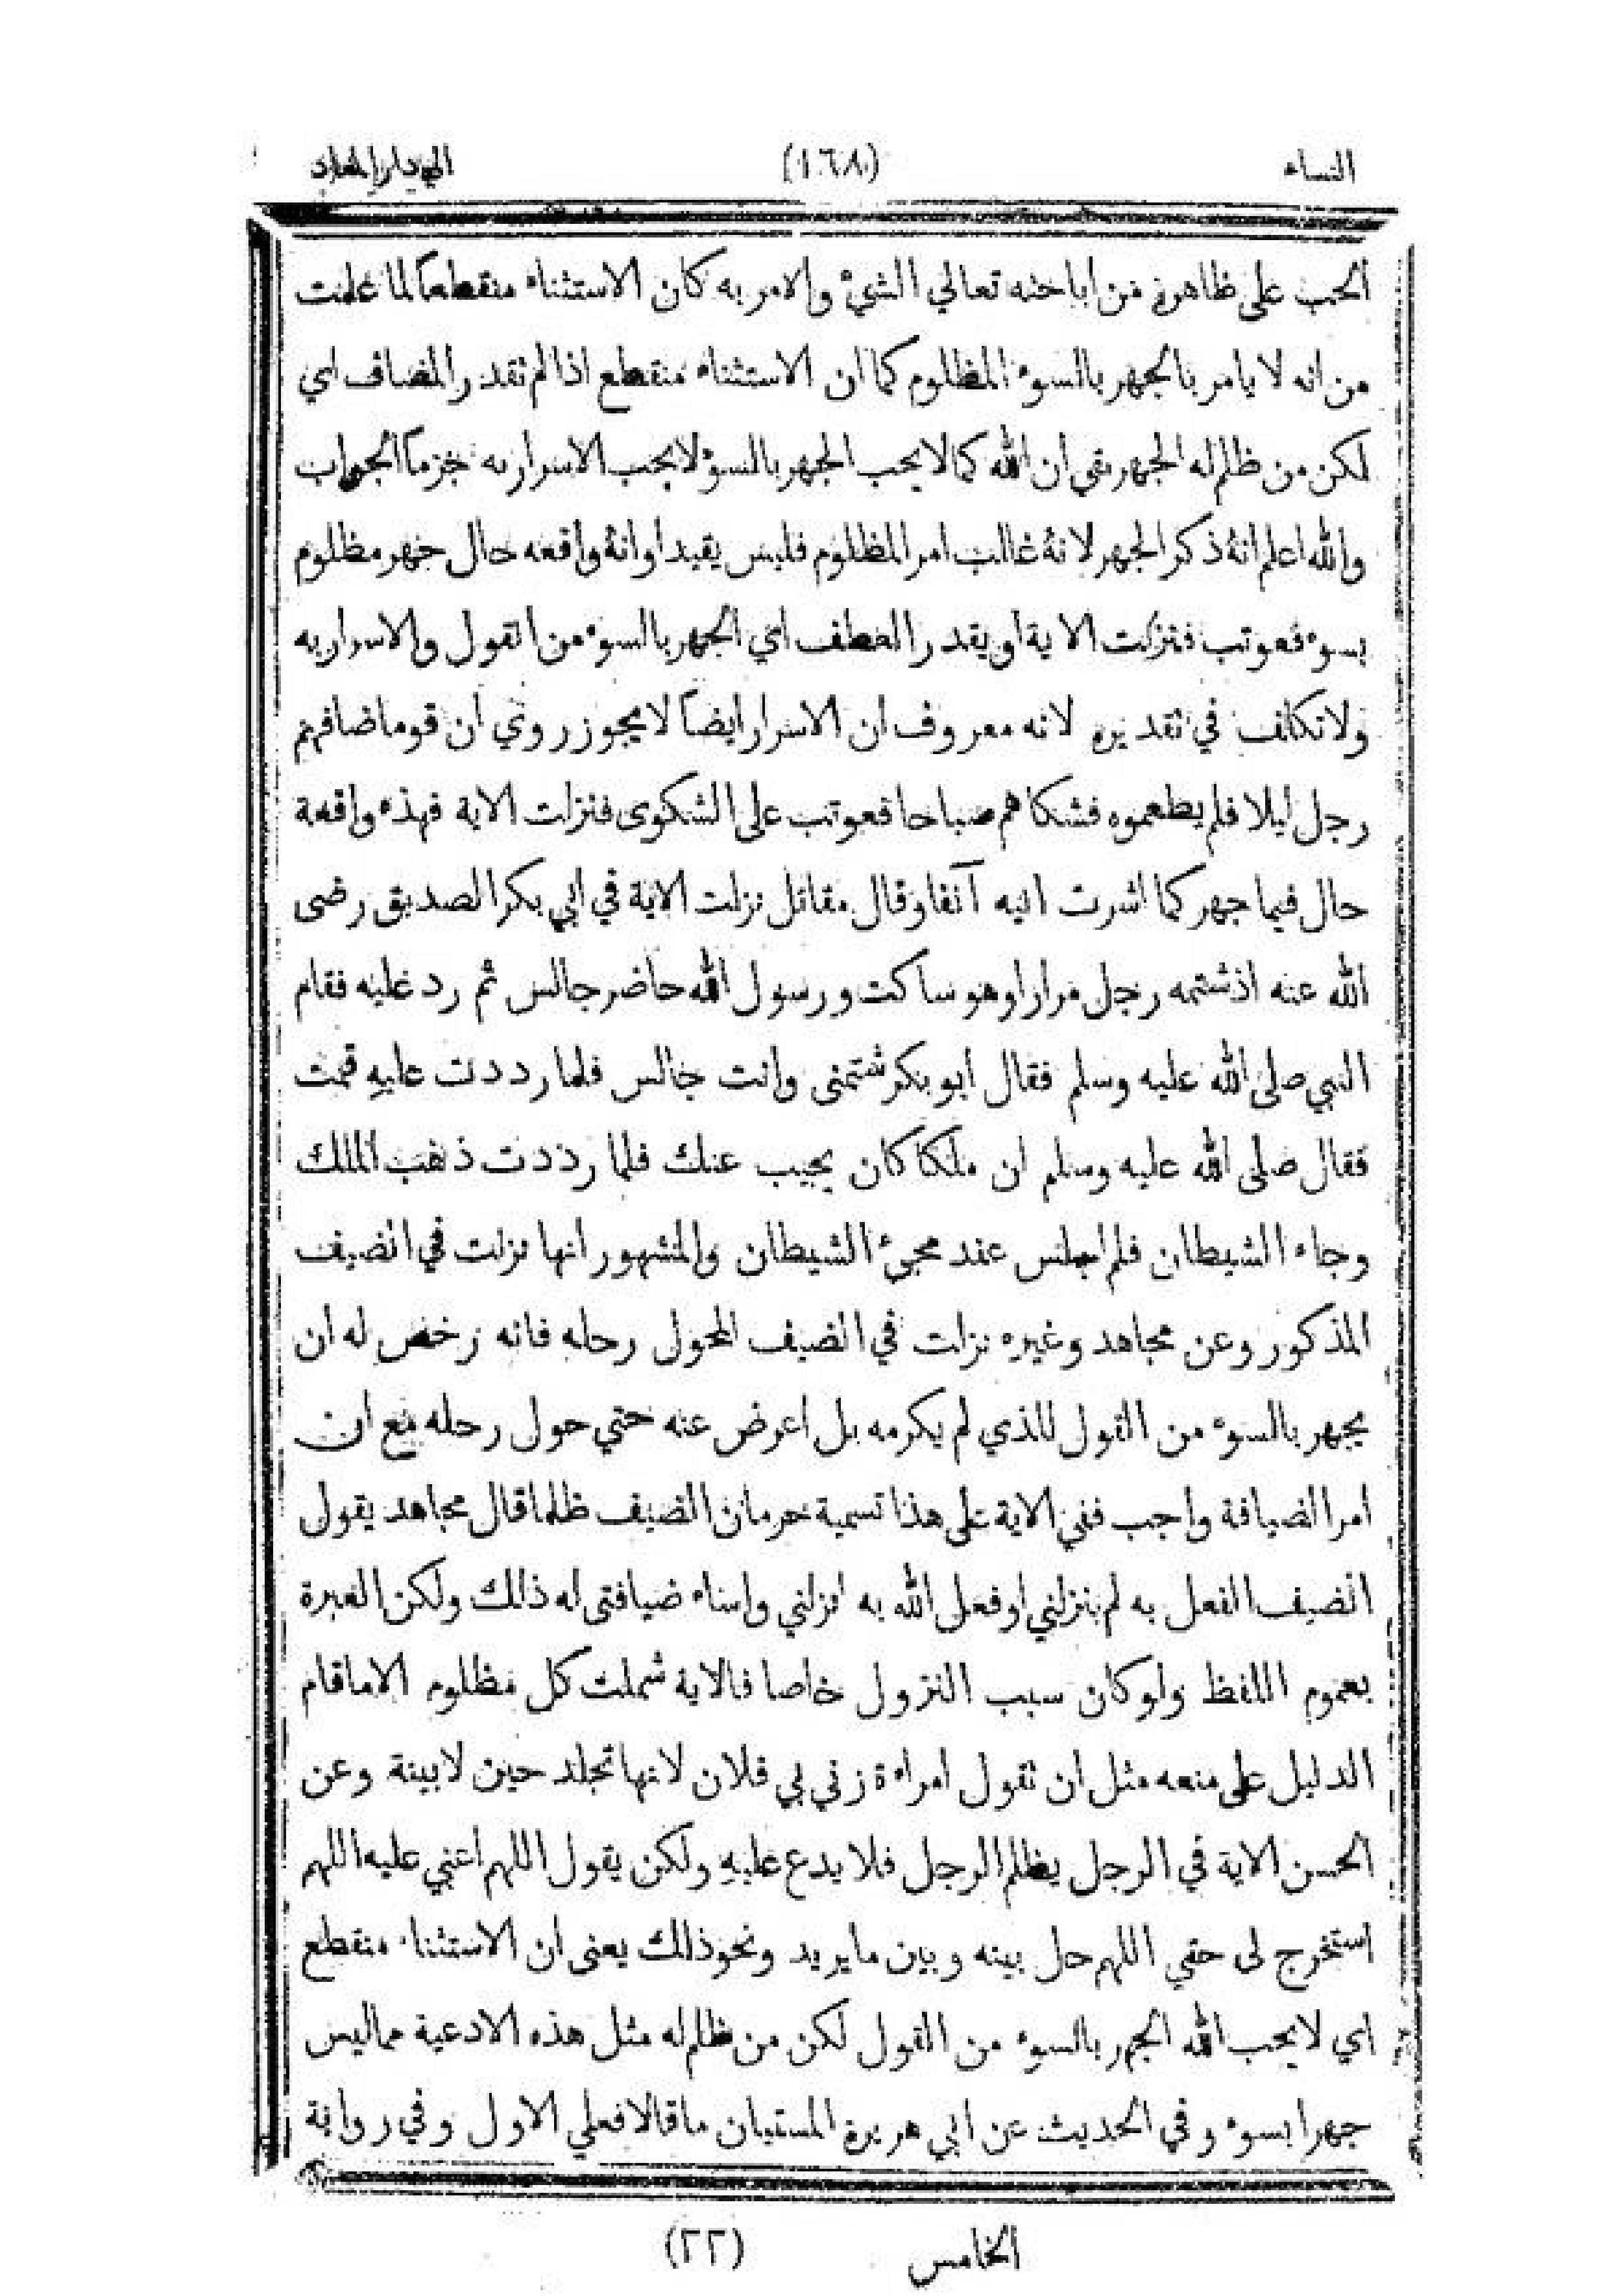 النساء (١٦٨) الي دار المعاد
الحب على ظاهره من اباحته تعالي الشيء والامر به كان الاستثناء منقطعا لما علمت
من انه لا يامر بالجهر بالسوء المظلوم كما ان الاستثناء منقطع اذا لم نقدر المضاف اي
لكن من ظلم له الجهر بقي ان الله كما لا يحب الجهر بالسوء لا يحب الاسرار به جزما الجواب
والله اعلم انه ذكر الجهر لانه غالب امر المظلوم فليس يقيد او انه واقعه حال جهر مظلوم
بسوء فعوتب فنزلت الاية او يقدر العطف اي الجهر بالسوء من القول والاسرار به
ولا تكلف في تقديره لانه معروف ان الاسرار ايضاً لا يجوز روي ان قوما ضافهم
رجل ليلا فلم يطعموه فشكاهم صباحا فعوتب على الشكوى فنزلت الاية فهذه واقعة
حال فيما جهر كما اشرت اليه آنفا وقال مقاتل نزلت الاية في ابي بكر الصديق رضى
الله عنه اذ شتمه رجل مرارا وهو ساكت ورسول الله حاضر جالس ثم رد عليه فقام
النبي صلى الله عليه وسلم فقال ابو بكر شتمنى وانت جالس فلما رددت عليه قمت
فقال صلى الله عليه وسلم ان ملكا كان يجيب عنك فلما رددت ذهب الملك
وجاء الشيطان فلم اجلس عند مجيء الشيطان والمشهور انها نزلت في الضيف
المذكور وعن مجاهد وغيره نزلت في الضيف المحول رحله فانه رخص له ان
يجهر بالسوء من القول للذي لم يكرمه بل اعرض عنه حتي حول رحله مع ان
امر الضيافة واجب ففي الاية على هذا تسمية حرمان الضيف ظلما قال مجاهد يقول
الضيف الفعل به لم ينزلني او فعل الله به انزلني واساء ضيافتى له ذالك ولكن العبرة
بعموم اللفظ ولو كان سبب النزول خاصا فالاية شملت كل مظلوم الا ما قام
الدليل على منعه مثل ان تقول امراءة زني بي فلان لانها تجلد حين لا بينة وعن
الحسن الاية في الرجل يظلم الرجل فلا يدع عليه ولكن يقول اللهم اعني عليه اللهم
استخرج لى حقي اللهم حل بينه وبين ما يريد ونحو ذلك يعنى ان الاستثناء منقطع
اي لا يحب الله الجهر بالسوء من القول لكن من ظلم له مثل هذه الادعية مما ليس
جهرا بسوء وفي الحديث عن ابي هريرة المستبان ما قالا فعلي الاول وفي رواية
الخامس (٢٢)